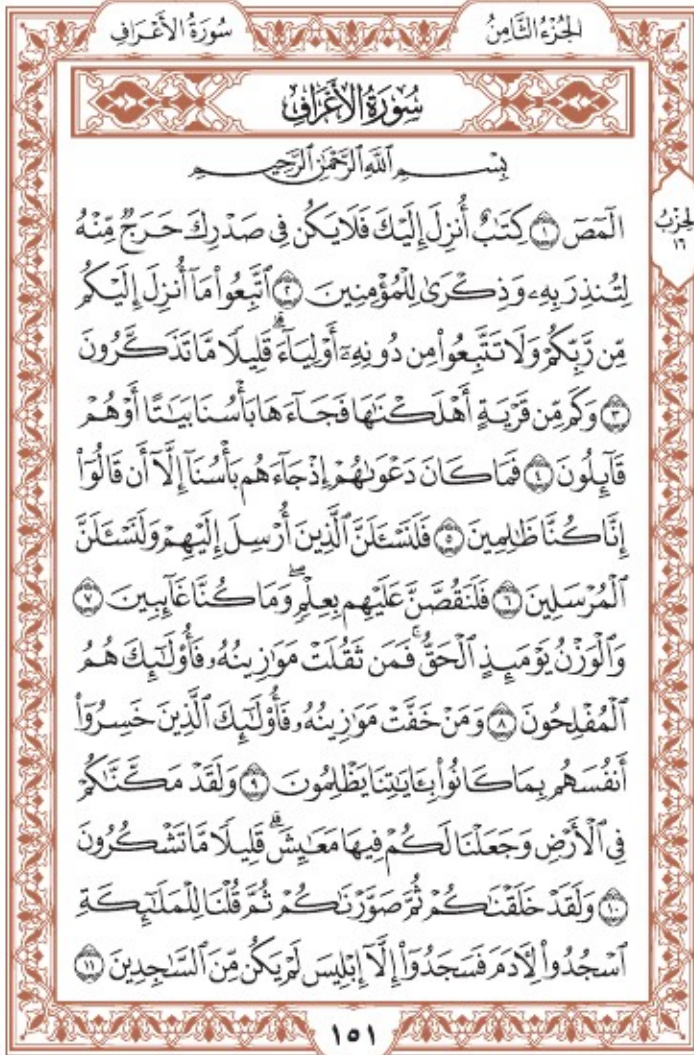 الجُزْءُ الثَّامِنُ
سُورَةُ الأَعْرَافِ
سُورَةُ الأَعْرَافِ
بِسْمِ ٱللَّهِ ٱلرَّحْمَٰنِ ٱلرَّحِيمِ
الٓمٓصٓ ۝١ كِتَٰبٌ أُنزِلَ إِلَيْكَ فَلَا يَكُن فِى صَدْرِكَ حَرَجٌ مِّنْهُ
لِتُنذِرَ بِهِۦ وَذِكْرَىٰ لِلْمُؤْمِنِينَ ۝٢ ٱتَّبِعُوا۟ مَآ أُنزِلَ إِلَيْكُم
مِّن رَّبِّكُمْ وَلَا تَتَّبِعُوا۟ مِن دُونِهِۦٓ أَوْلِيَآءَ ۗ قَلِيلًا مَّا تَذَكَّرُونَ
۝٣ وَكَم مِّن قَرْيَةٍ أَهْلَكْنَٰهَا فَجَآءَهَا بَأْسُنَا بَيَٰتًا أَوْ هُمْ
قَآئِلُونَ ۝٤ فَمَا كَانَ دَعْوَىٰهُمْ إِذْ جَآءَهُم بَأْسُنَآ إِلَّآ أَن قَالُوٓا۟
إِنَّا كُنَّا ظَٰلِمِينَ ۝٥ فَلَنَسْـَٔلَنَّ ٱلَّذِينَ أُرْسِلَ إِلَيْهِمْ وَلَنَسْـَٔلَنَّ
ٱلْمُرْسَلِينَ ۝٦ فَلَنَقُصَّنَّ عَلَيْهِم بِعِلْمٍ ۖ وَمَا كُنَّا غَآئِبِينَ ۝٧
وَٱلْوَزْنُ يَوْمَئِذٍ ٱلْحَقُّ ۚ فَمَن ثَقُلَتْ مَوَٰزِينُهُۥ فَأُو۟لَٰٓئِكَ هُمُ
ٱلْمُفْلِحُونَ ۝٨ وَمَنْ خَفَّتْ مَوَٰزِينُهُۥ فَأُو۟لَٰٓئِكَ ٱلَّذِينَ خَسِرُوٓا۟
أَنفُسَهُم بِمَا كَانُوا۟ بِـَٔايَٰتِنَا يَظْلِمُونَ ۝٩ وَلَقَدْ مَكَّنَّٰكُمْ
فِى ٱلْأَرْضِ وَجَعَلْنَا لَكُمْ فِيهَا مَعَٰيِشَ ۗ قَلِيلًا مَّا تَشْكُرُونَ
۝١٠ وَلَقَدْ خَلَقْنَٰكُمْ ثُمَّ صَوَّرْنَٰكُمْ ثُمَّ قُلْنَا لِلْمَلَٰٓئِكَةِ
ٱسْجُدُوا۟ لِـَٔادَمَ فَسَجَدُوٓا۟ إِلَّآ إِبْلِيسَ لَمْ يَكُن مِّنَ ٱلسَّٰجِدِينَ ۝١١
الحِزْبُ
١٦
١٥١